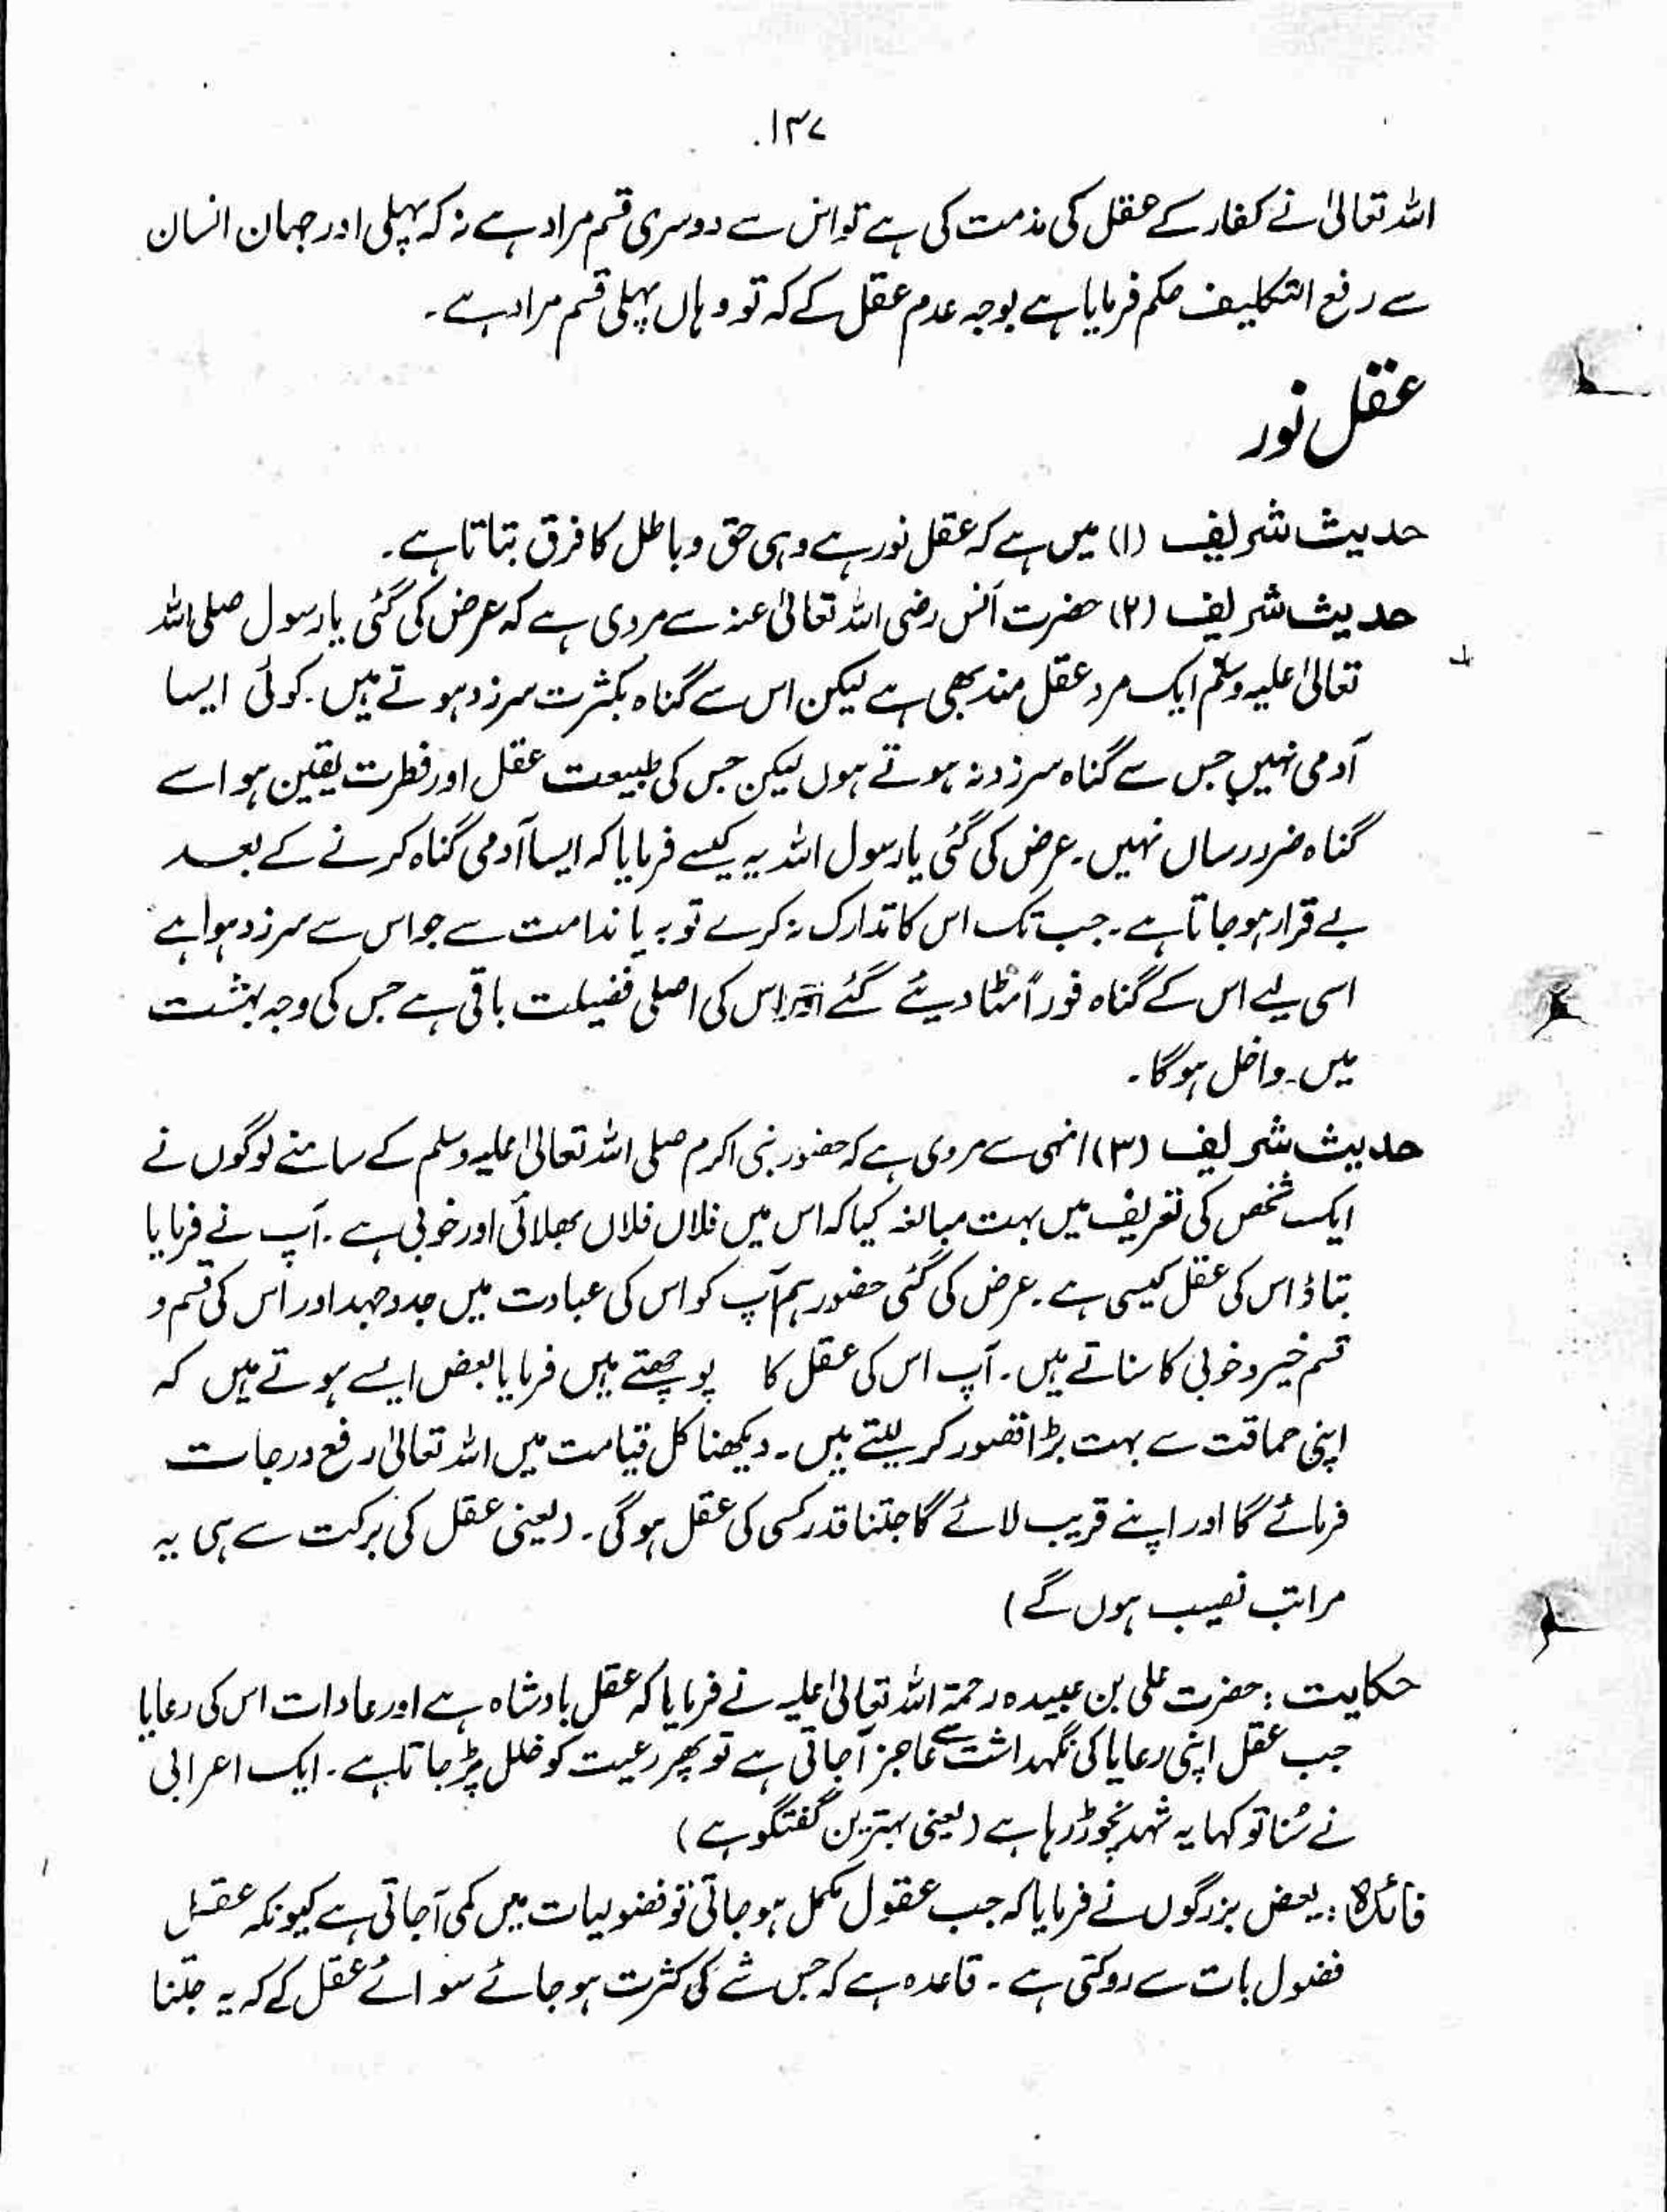 ۱۳۷
اللہ تعالیٰ نے کفار کے عقل کی مذمت کی ہے تو اس سے دوسری قسم مراد ہے نہ کہ پہلی اور جہان انسان
سے رفع التکلیف حکم فرمایا ہے بوجہ عدم عقل کے کہ تو وہاں پہلی قسم مراد ہے۔
عقل نور
حدیث شریف (۱) میں ہے کہ عقل نور ہے وہی حق و باطل کا فرق بتاتا ہے۔
حدیث شریف (۲) حضرت انس رضی اللہ تعالیٰ عنہ سے مروی ہے کہ عرض کی گئی یا رسول صلی اللہ
تعالیٰ علیہ وسلم ایک مرد عقل مند بھی ہے لیکن اس سے گناہ بکثرت سرزد ہوتے ہیں۔ کوئی ایسا
آدمی نہیں جس سے گناہ سرزد نہ ہوتے ہوں لیکن جس کی طبیعت عقل اور فطرت یقین ہو اسے
گناہ ضرر رساں نہیں۔ عرض کی گئی یا رسول اللہ یہ کیسے فرمایا کہ ایسا آدمی گناہ کرنے کے بعد
بے قرار ہو جاتا ہے۔ جب تک اس کا تدارک نہ کرے توبہ یا ندامت سے جو اس سے سرزد ہوا ہے
اسی لیے اس کے گناہ فوراً مٹا دیئے گئے اور اس کی اصلی فضیلت باقی ہے جس کی وجہ بہشت
میں داخل ہوگا۔
حدیث شریف (۳) انہی سے مروی ہے کہ حضور نبی اکرم صلی اللہ تعالیٰ علیہ وسلم کے سامنے لوگوں نے
ایک شخص کی تعریف میں بہت مبالغہ کیا کہ اس میں فلاں فلاں بھلائی اور خوبی ہے۔ آپ نے فرمایا
بتاؤ اس کی عقل کیسی ہے۔ عرض کی گئی حضور ہم آپ کو اس کی عبادت میں جدوجہد اور اس کی قسم و
قسم خیر و خوبی کا سناتے ہیں۔ آپ اس کی عقل کا پوچھتے ہیں فرمایا بعض ایسے ہوتے ہیں کہ
اپنی حماقت سے بہت بڑا قصور کر لیتے ہیں۔ دیکھنا کل قیامت میں اللہ تعالیٰ رفع درجات
فرمائے گا اور اپنے قریب لائے گا جتنا قدر کسی کی عقل ہوگی۔ (یعنی عقل کی برکت سے ہی یہ
مراتب نصیب ہوں گے)
حکایت : حضرت علی بن عبیدہ رحمۃ اللہ تعالیٰ علیہ نے فرمایا کہ عقل بادشاہ ہے اور عادات اس کی رعایا
جب عقل اپنی رعایا کی نگہداشت سے عاجز آجاتی ہے تو پھر رعیت کو خلل پڑ جاتا ہے۔ ایک اعرابی
نے سُنا تو کہا یہ شہد نچوڑ رہا ہے (یعنی بہترین گفتگو ہے)
فائدہ : بعض بزرگوں نے فرمایا کہ جب عقول مکمل ہو جاتی تو فضولیات میں کمی آجاتی ہے کیونکہ عقل
فضول بات سے روکتی ہے۔ قاعدہ ہے کہ جس شے کی کثرت ہو جائے سوائے عقل کے کہ یہ جتنا